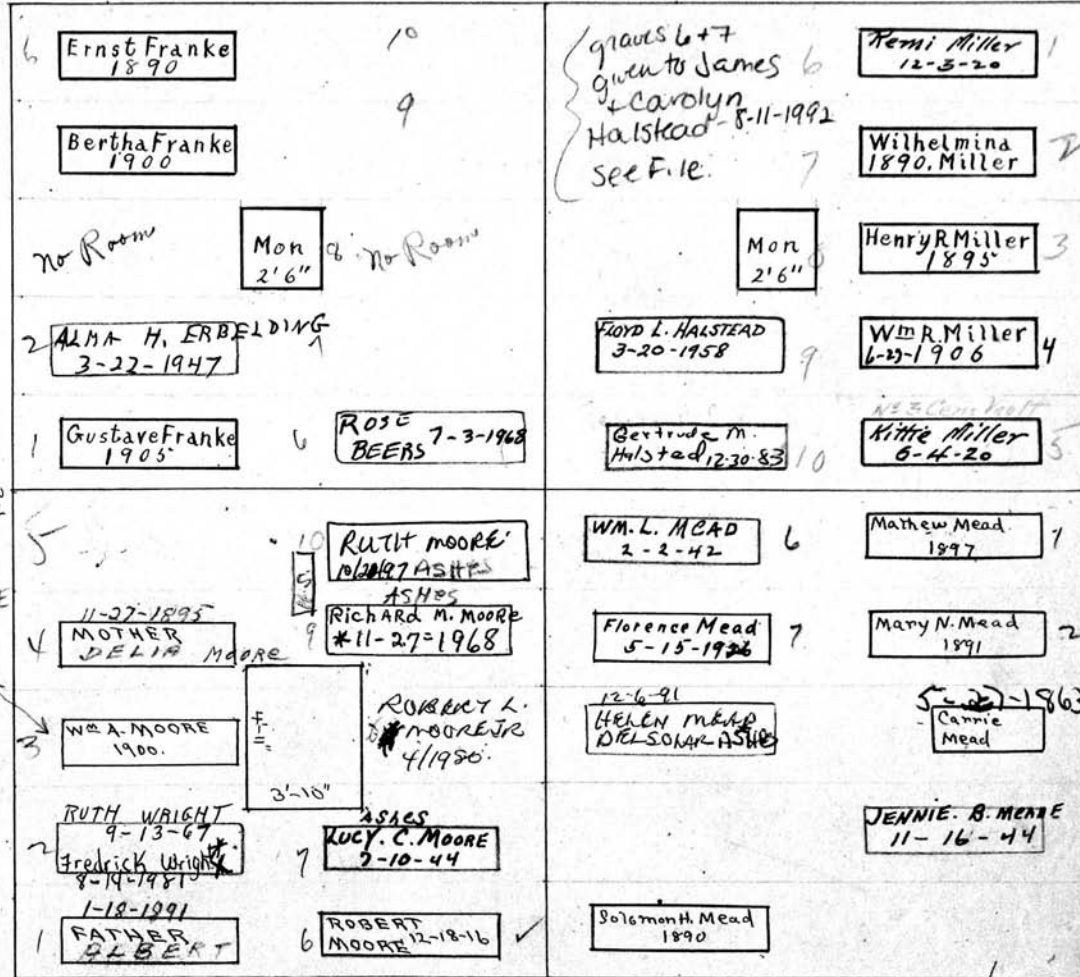 6
Ernst Franke
1890
10
Bertha Franke
1900
9
no Room
Mon
2'6"
8
no Room
2
ALMA H. ERBELDING
3-22-1947
1
Gustave Franke
1905
6
ROSE
BEERS 7-3-1968
graves 6+7
given to James
+ Carolyn
Halstead - 8-11-1992
see File.
6
7
Remi Miller
12-3-20
1
Wilhelmina
1890. Miller
2
Mon
2'6"
8
Henry R Miller
1895
3
FLOYD L. HALSTEAD
3-20-1958
9
Wm R. Miller
6-29-1906
4
Gertrude M.
Halsted 12-30-83
10
Kittie Miller
6-4-20
5
5
10
RUTH MOORE
10/20/97 ASHES
ASHES
Richard M. Moore
*11-27-1968
9
11-27-1895
4
MOTHER
DELIA MOORE
3
Wm A. MOORE
1900.
3'-10"
ROBERT L.
MOORE JR
4/1980.
RUTH WRIGHT
9-13-67
2
Fredrick Wright
8-14-1981
7
ASHES
LUCY. C. MOORE
7-10-44
1-18-1891
1
FATHER
ALBERT
6
ROBERT
MOORE 12-18-16
WM. L. MEAD
2-2-42
6
Mathew Mead
1897
1
Florence Mead
5-15-1926
7
Mary N. Mead
1891
2
12-6-91
HELEN MEAD
DELSOLAR ASHES
5-27-1863
Carrie
Mead
JENNIE. B. MEADE
11-16-44
Solomon H. Mead
1890